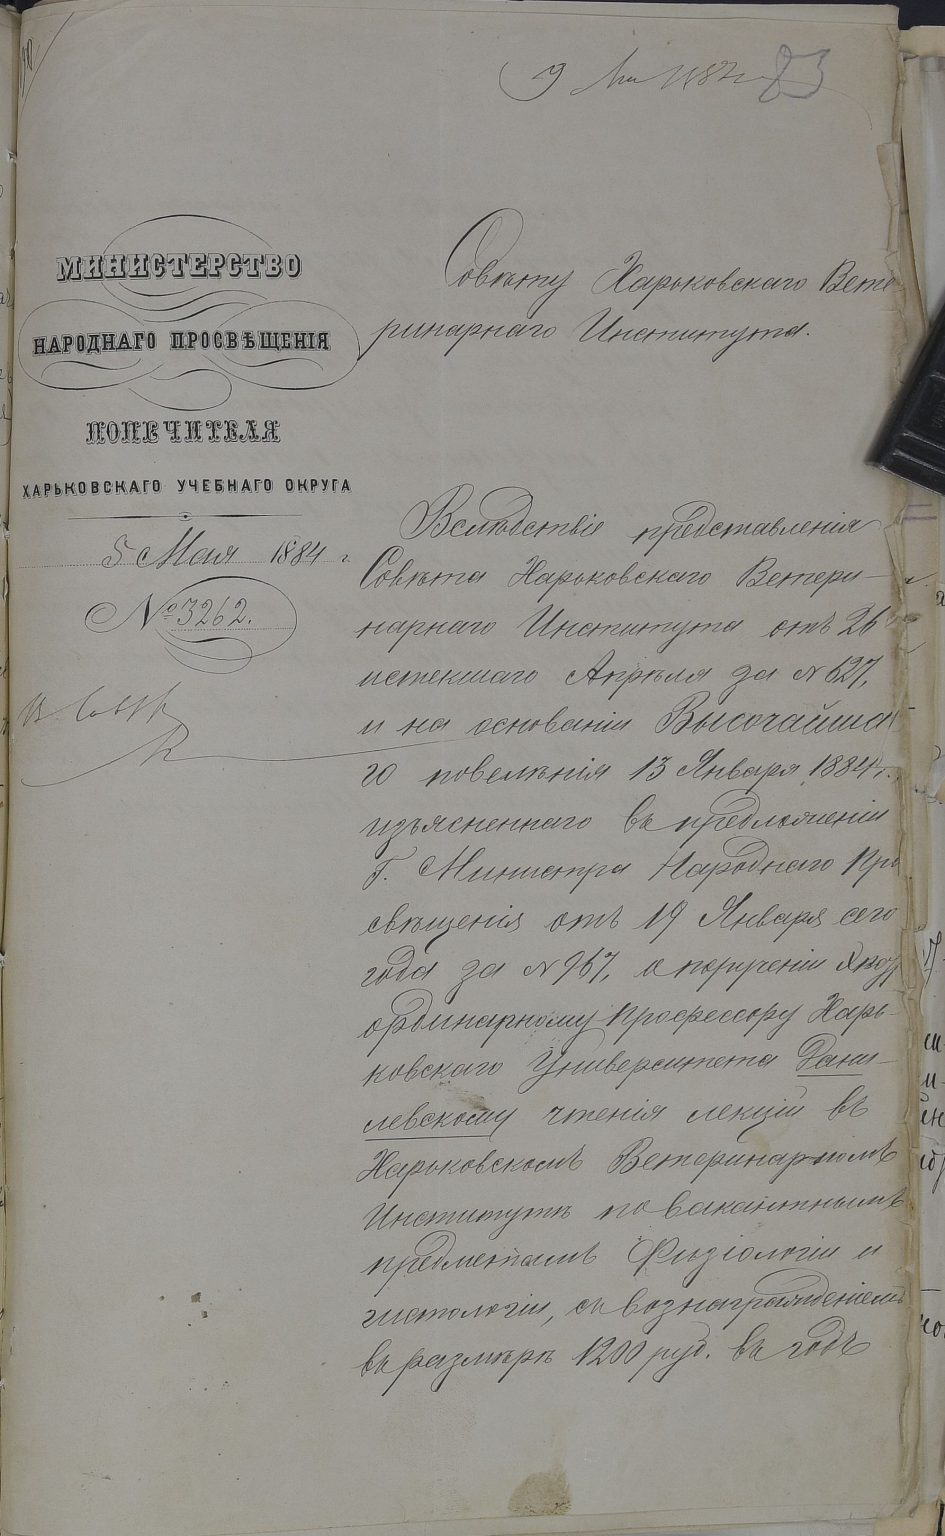 9 Мая 1884
83
МИНИСТЕРСТВО
НАРОДНАГО ПРОСВѢЩЕНІЯ
ПОПЕЧИТЕЛЯ
ХАРЬКОВСКАГО УЧЕБНАГО ОКРУГА
5 Мая 1884 г.
№ 3262.
Совѣту Харьковскаго Вете
ринарнаго Института.
Вслѣдствіе представленія
Совѣта Харьковскаго Ветери-
нарнаго Института отъ 26
истекшаго Апрѣля за № 627,
и на основаніи Высочайша
го повелѣнія 13 Января 1884 г.
изъясненнаго въ предложеніи
Г. Министра Народнаго Про
свѣщенія отъ 19 Января сего
года за № 967, о порученіи Экстр
ординарному Профессору Харь-
ковскаго Университета Дани-
левскому чтенія лекцій въ
Харьковскомъ Ветеринарномъ
Институтѣ по вакантнымъ
предметамъ Физіологіи и
гистологіи, съ вознагражденіемъ
въ размѣрѣ 1200 руб. въ годъ